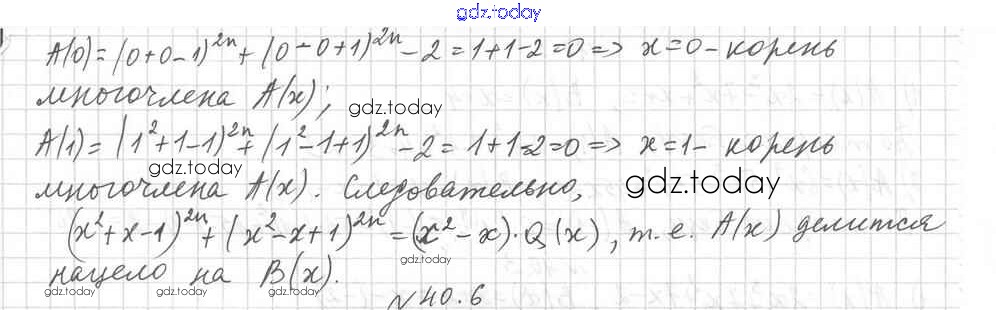 gdz.today
A(0) = (0+0-1)^{2n} + (0-0+1)^{2n} - 2 = 1+1-2 = 0 => x=0 - корень
многочлена A(x);
gdz.today
A(1) = (1^2+1-1)^{2n} + (1^2-1+1)^{2n} - 2 = 1+1-2 = 0 => x=1 - корень
gdz.today
многочлена A(x). Следовательно,
gdz.today
(x^2+x-1)^{2n} + (x^2-x+1)^{2n} = (x^2-x)·Q(x), т.е. A(x) делится
gdz.today
нацело на B(x).
gdz.today
gdz.today
№40.6